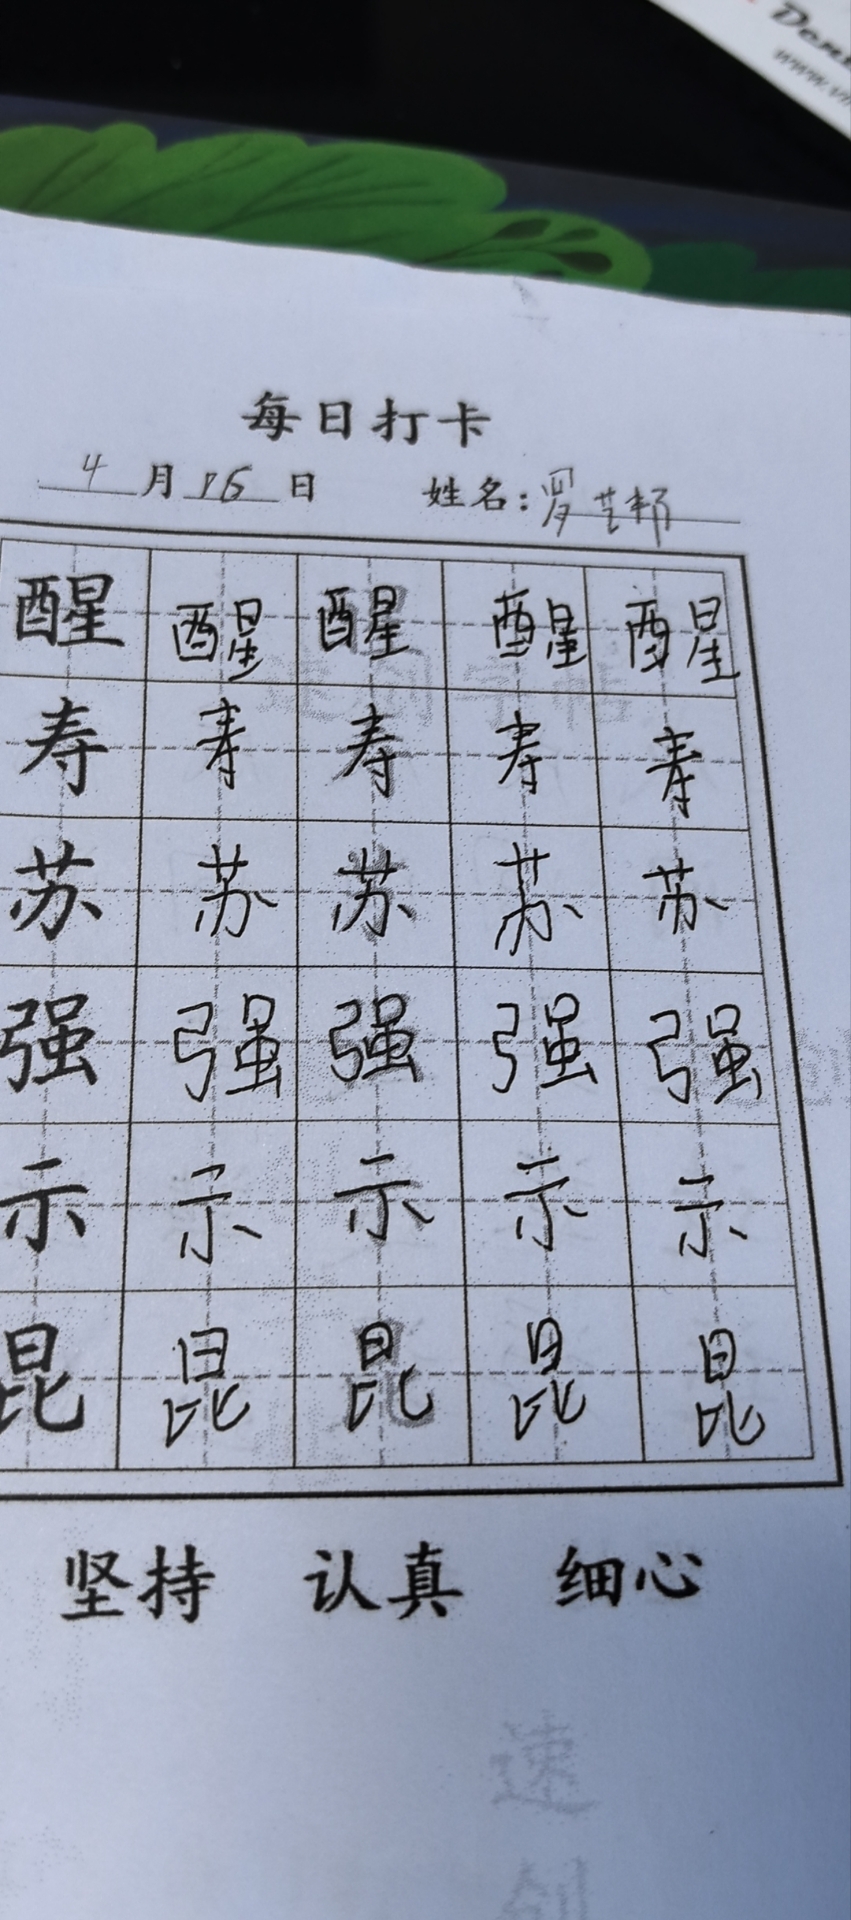 Den
www.vi
每日打卡
4月16日 姓名:罗艺邦
醒 醒 醒 醒 醒
寿 寿 寿 寿 寿
苏 苏 苏 苏 苏
强 强 强 强 强
示 示 示 示 示
昆 昆 昆 昆 昆
坚持 认真 细心